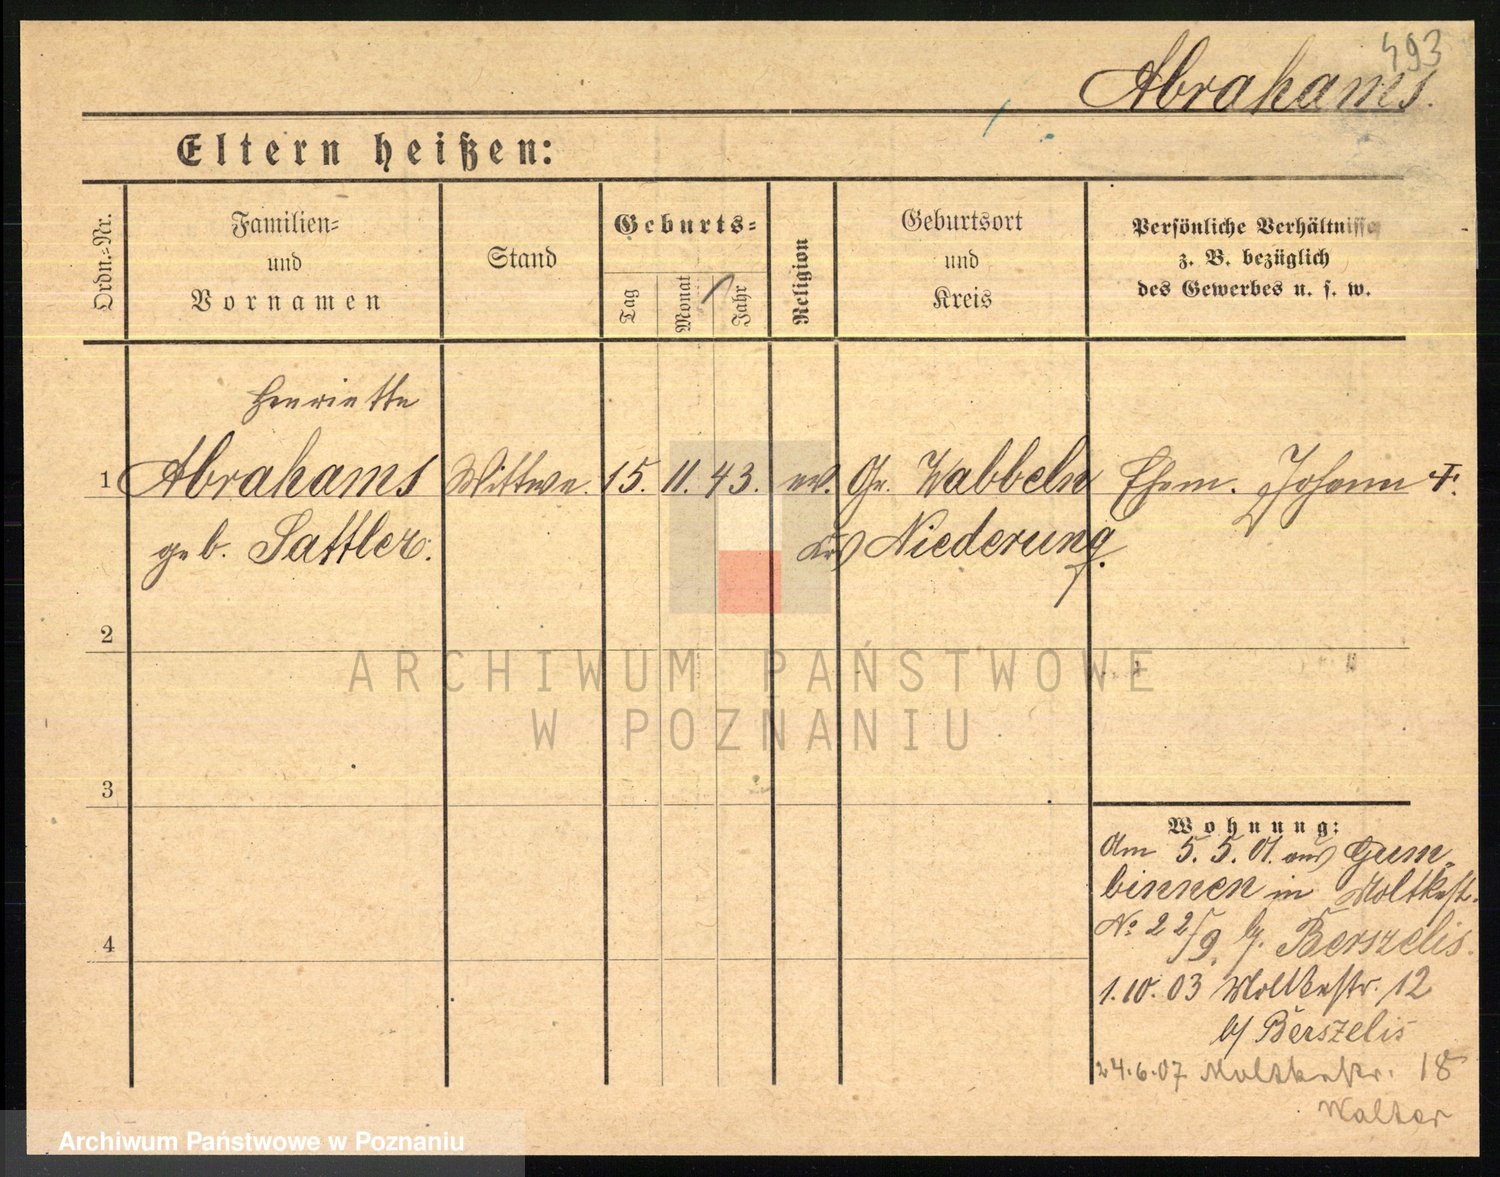 493
Abrahams.
Eltern heißen:
Ordn.-Nr.
Familien-
und
Vornamen
Stand
Geburts-
Tag
Monat
Jahr
Religion
Geburtsort
und
Kreis
Persönliche Verhältnisse
z. B. bezüglich
des Gewerbes u. s. w.
Henriette
1 Abrahams Wittwe. 15. 11. 43. ev. Gr. Wabbeln Ehem. Johann †.
geb. Sattler. Krs Niederung.
2
3
4
Wohnung:
Am 5. 5. 01. aus Gum-
binnen in Moltkestr.
No 22/9. b/. Berszelis.
1. 10. 03 Moltkestr. 12
b/ Berszelis
24.6.07 Moltkestr. 18
Walter
ARCHIWUM PAŃSTWOWE
W POZNANIU
Archiwum Państwowe w Poznaniu